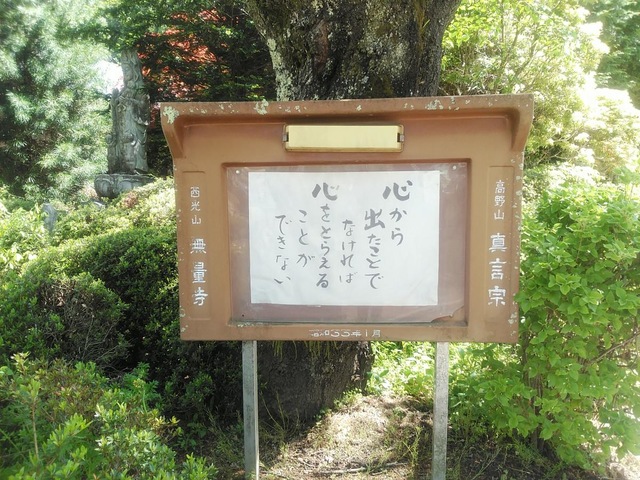 高野山 真言宗
心から
出たことで
なければ
心をとらえる
ことが
できない
西光山 無量寺